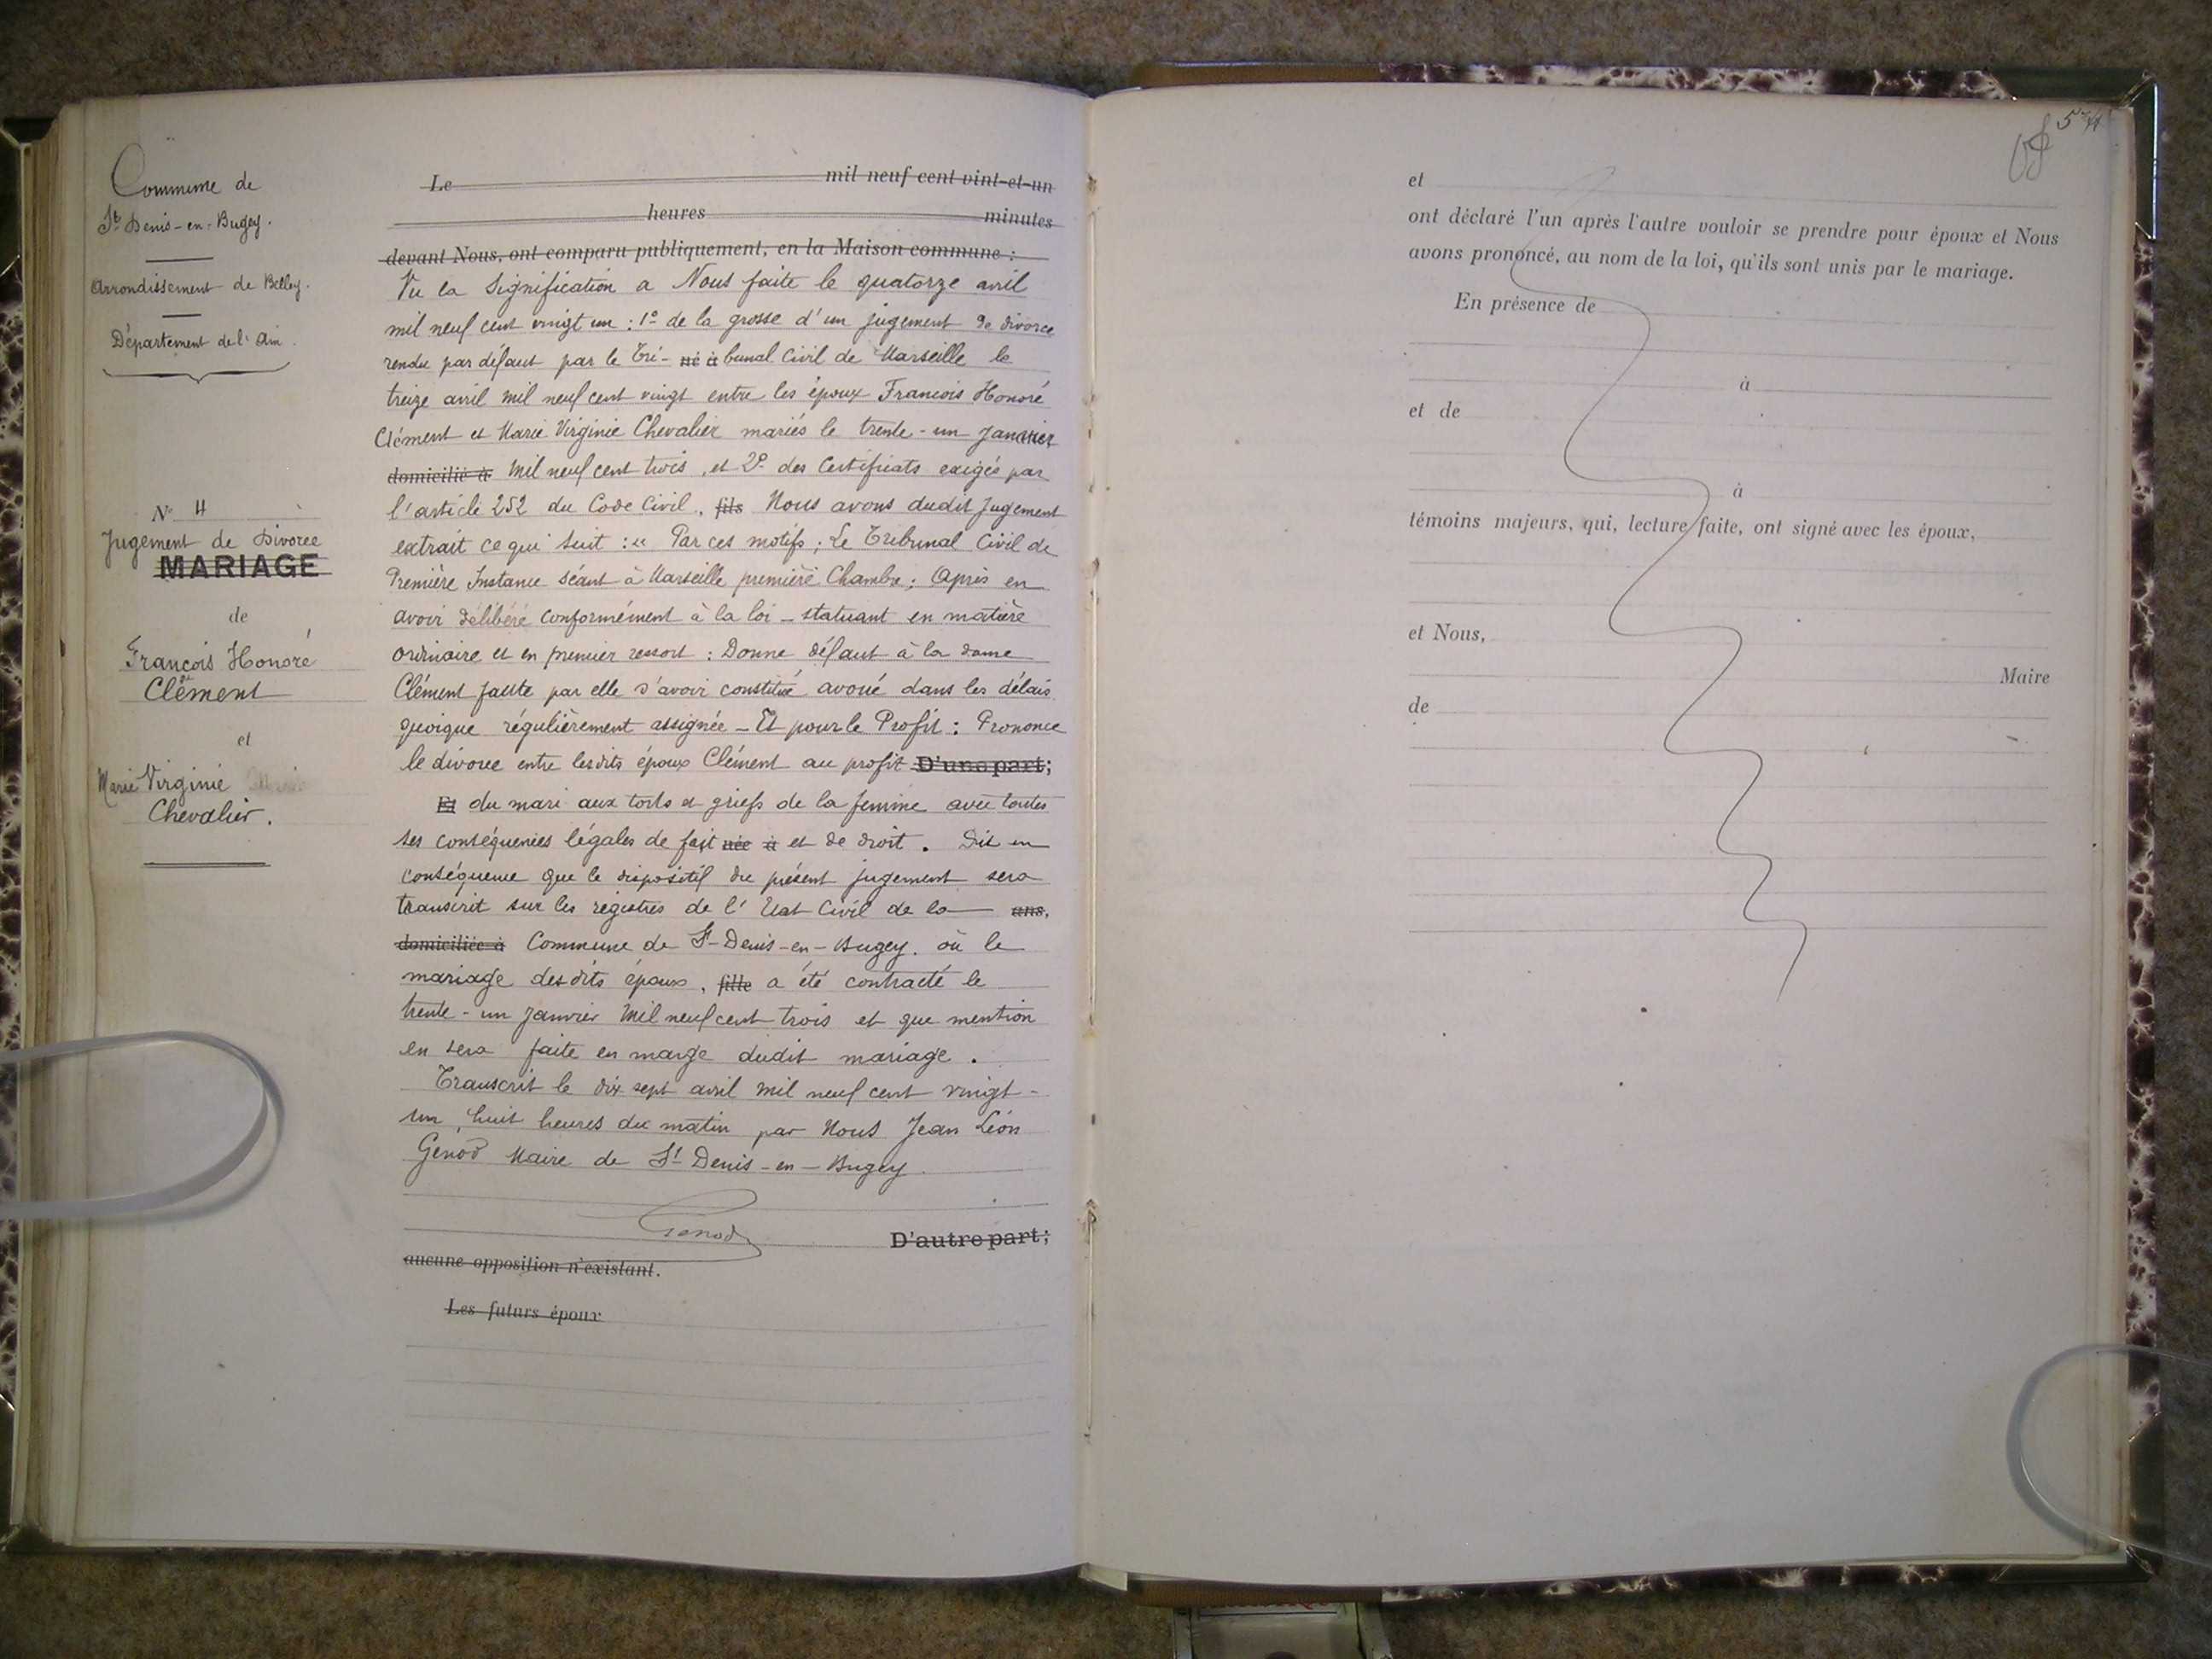 Commune de
St Denis-en-Bugey.
Arrondissement de Belley.
Département de l'Ain.
N° 4
Jugement de Divorce
MARIAGE
de
François Honoré
Clément
et
Marie Virginie
Chevalier.
Le mil neuf cent vint-et-un
heures minutes
devant Nous, ont comparu publiquement, en la Maison commune :
Vu la Signification a Nous faite le quatorze avril
mil neuf cent vingt un : 1° de la grosse d'un jugement de divorce
rendu par défaut par le Tri- né à bunal Civil de Marseille le
treize avril mil neuf cent vingt entre les époux Francois Honoré
Clément et Marie Virginie Chevalier mariés le trente-un Janvier
domicilié à mil neuf cent trois, et 2° des Certificats exigés par
l'article 252 du Code Civil, fils Nous avons dudit Jugement
extrait ce qui suit : " Par ces motifs ; Le Tribunal Civil de
Première Instance séant à Marseille première Chambre ; Après en
avoir délibéré conformément à la loi - statuant en matière
ordinaire et en premier ressort : Donne défaut à la dame
Clément faute par elle d'avoir constitué avoué dans les délais
quoique régulièrement assignée - Et pour le Profit : Prononce
le divorce entre lesdits époux Clément au profit D'une part;
Et du mari aux torts et griefs de la femme avec toutes
ses conséquences légales de fait née à et de droit. Dit en
conséquence que le dispositif du présent jugement sera
transcrit sur les registres de l'Etat Civil de la ans,
domiciliée à Commune de St-Denis-en-Bugey. où le
mariage desdits époux, fille a été contracté le
trente-un janvier mil neuf cent trois et que mention
en sera faite en marge dudit mariage.
Transcrit le dix sept avril mil neuf cent vingt-
un, huit heures du matin par Nous Jean Léon
Genod Maire de St-Denis-en-Bugey.
Genod
D'autre part;
aucune opposition n'existant.
Les futurs époux
et
ont déclaré l'un après l'autre vouloir se prendre pour époux et Nous
avons prononcé, au nom de la loi, qu'ils sont unis par le mariage.
En présence de
à
et de
à
témoins majeurs, qui, lecture faite, ont signé avec les époux,
et Nous,
Maire
de